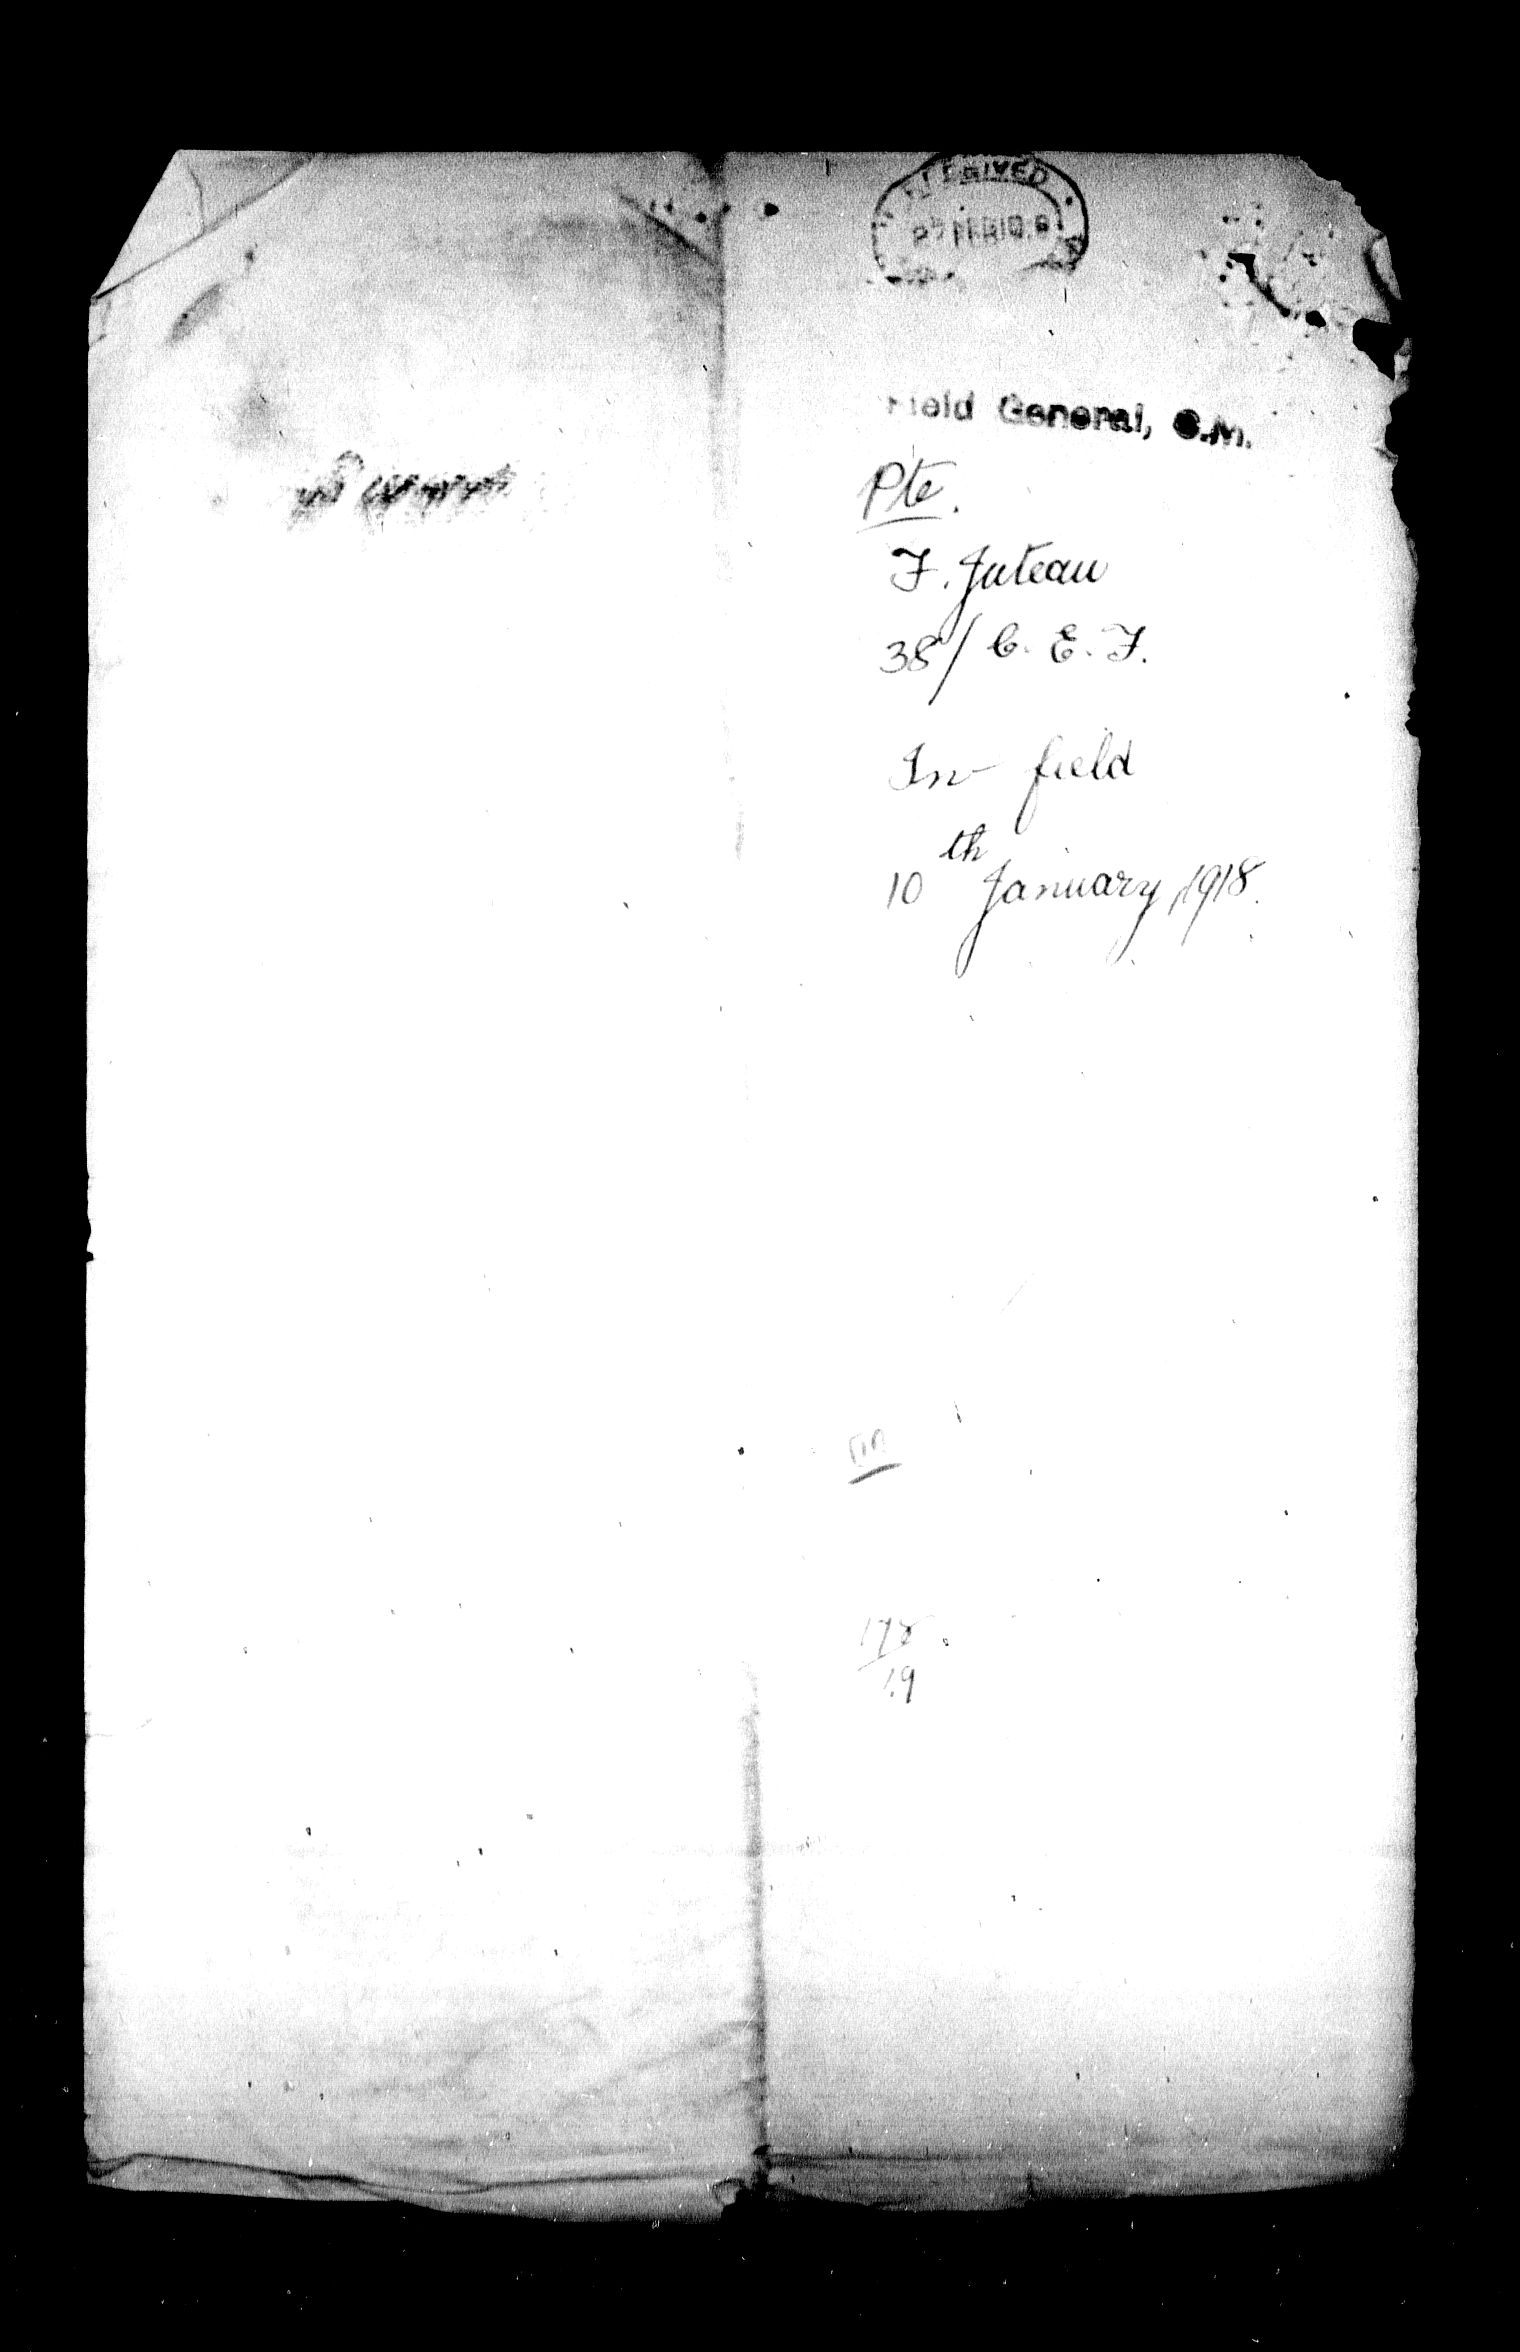 RECEIVED
Field General, C.M.
Pte.
F. Juteau
38/ C. E. F.
In field
10th January, 1918.